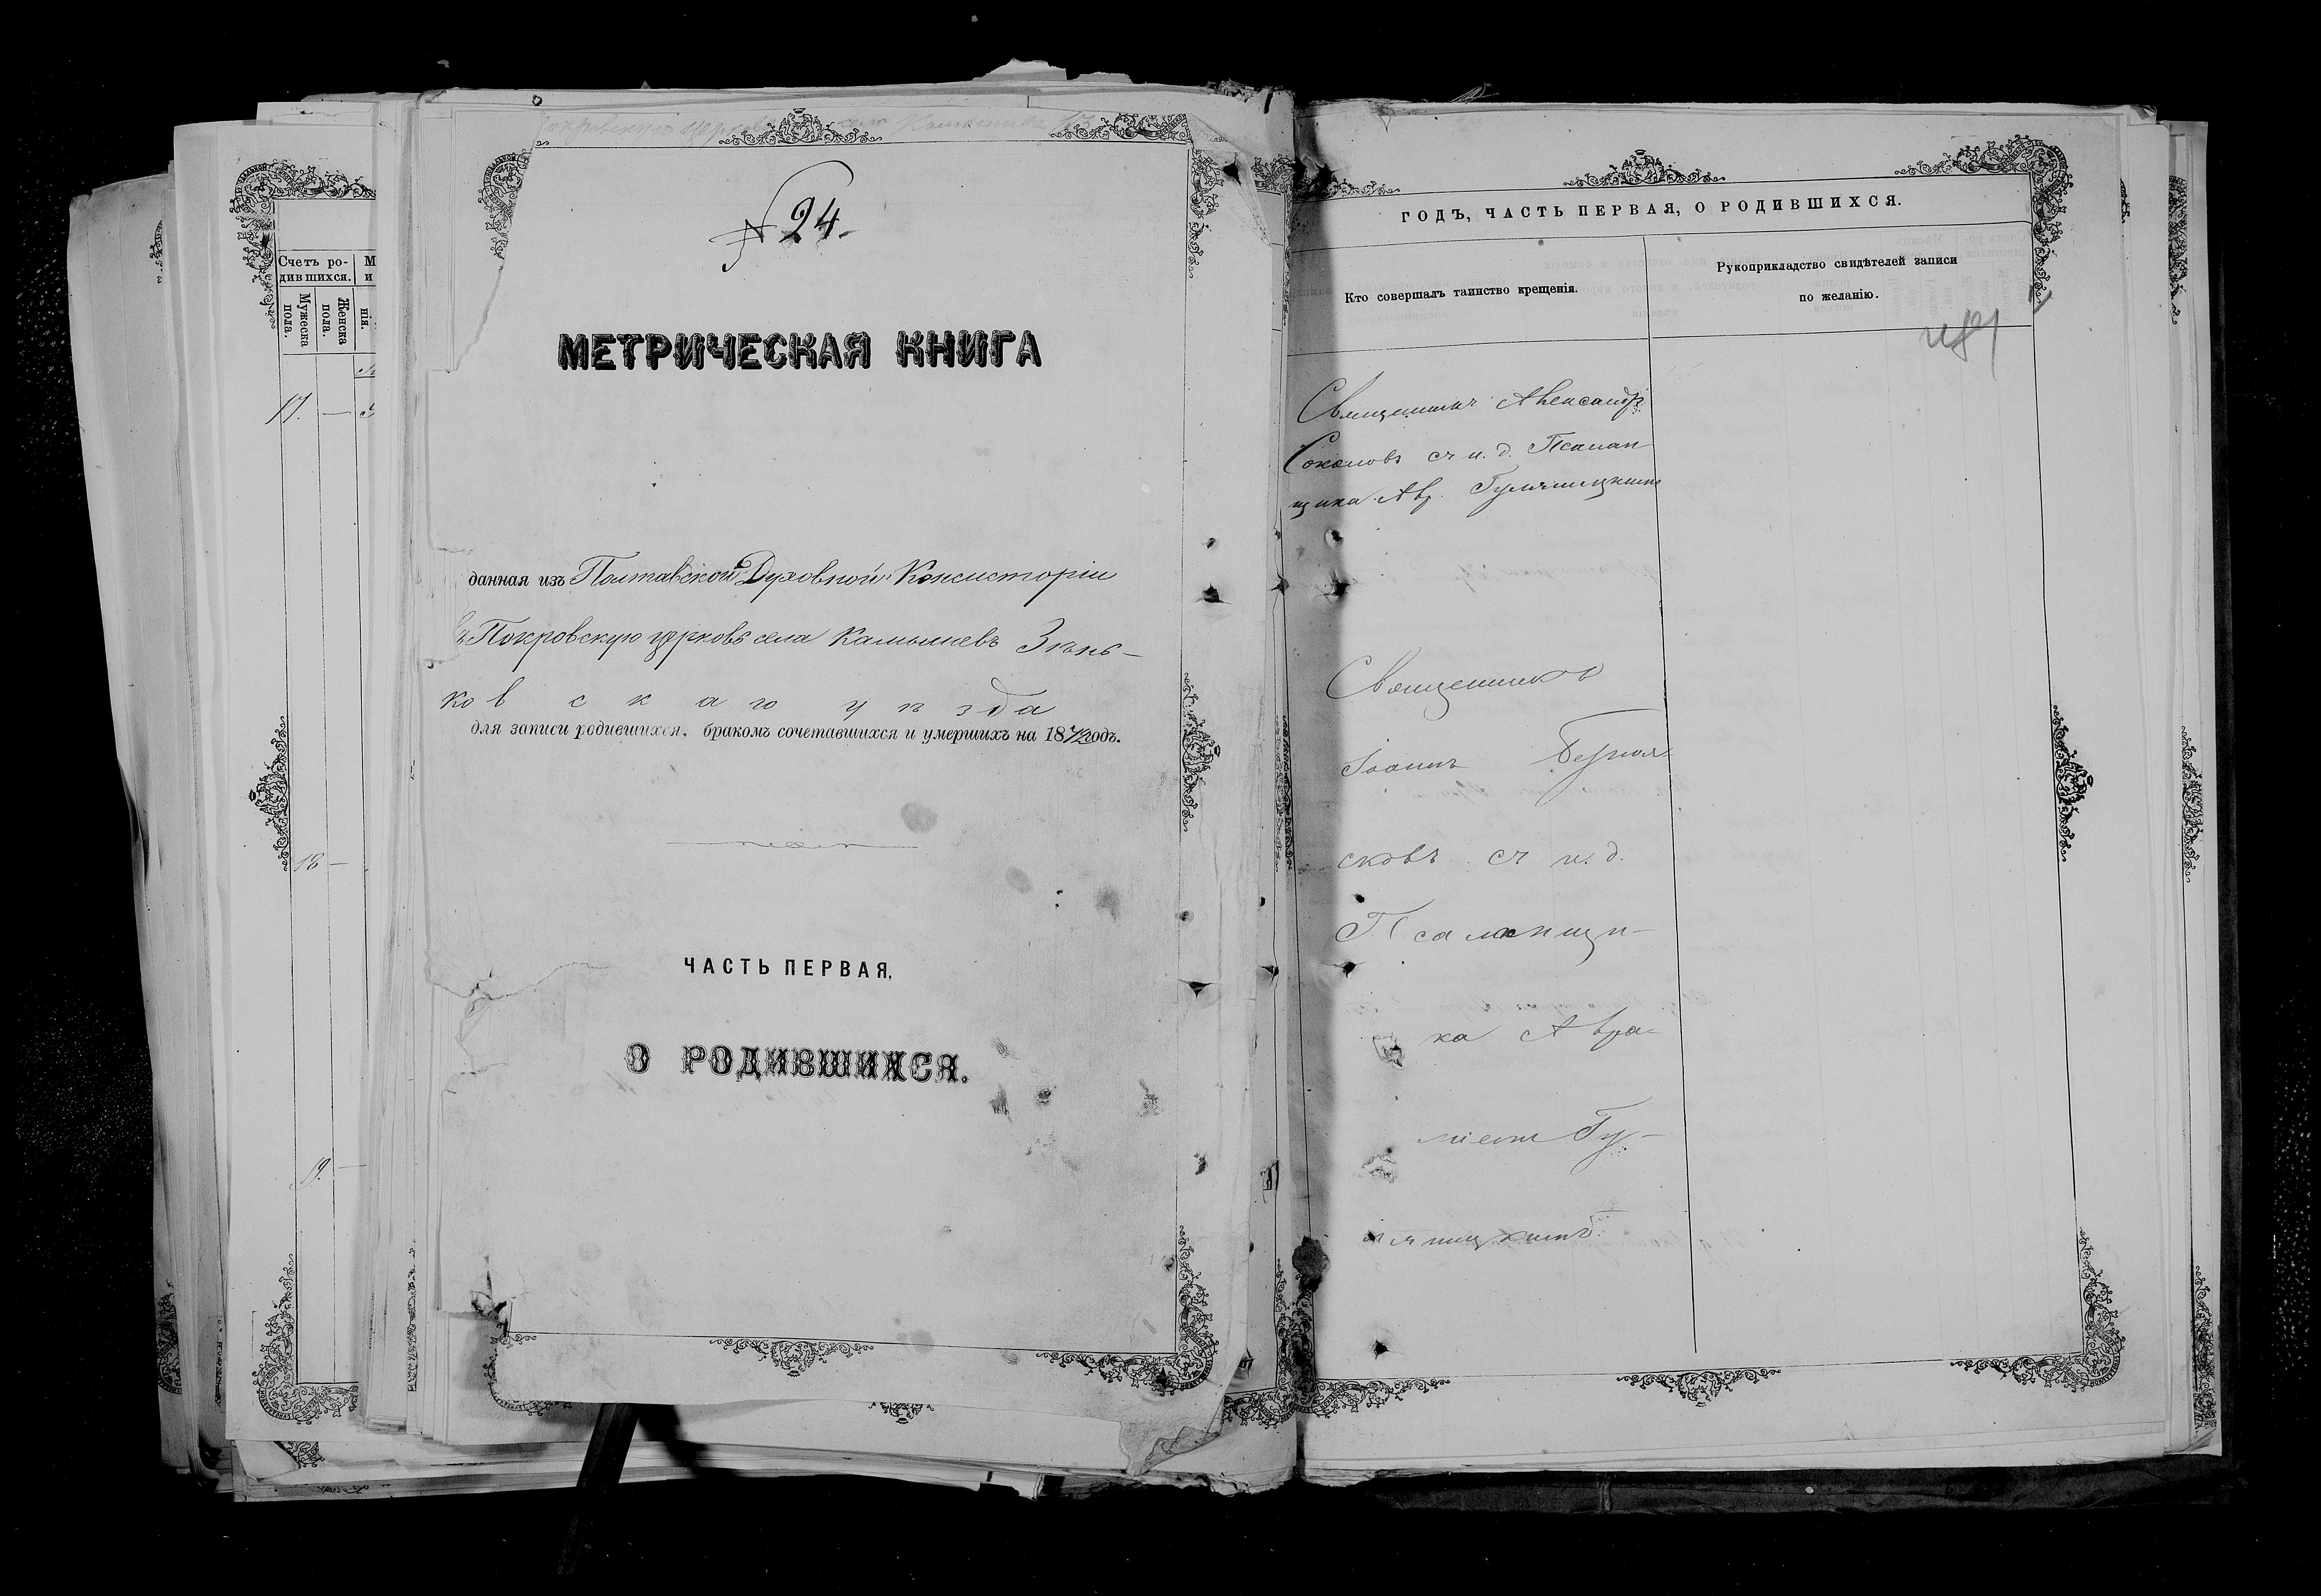 Счетъ ро-
дившихся.
М
и
Мужеска
пола.
Женска
пола.
нія.
17. —
18 —
19. —
№ 24.
МЕТРИЧЕСКАЯ КНИГА
данная изъ Полтавской Духовной Консисторіи
въ Покровскую церковь села Камышевъ Зѣнь-
ков с к а г о у ѣ з д а
для записи родившихся, бракомъ сочетавшихся и умершихъ на 18 годъ.
ЧАСТЬ ПЕРВАЯ,
О РОДИВШИХСЯ.
ГОДЪ, ЧАСТЬ ПЕРВАЯ, О РОДИВШИХСЯ.
Кто совершалъ таинство крещенія.
Рукоприкладство свидѣтелей записи
по желанію.
Священникъ Александръ
Соколовъ съ и. д. Псалом
щика Ав.
Священникъ
Іоаннъ
сковъ съ и. д.
Псаломщи-
ка Авра-
міемъ Гу-